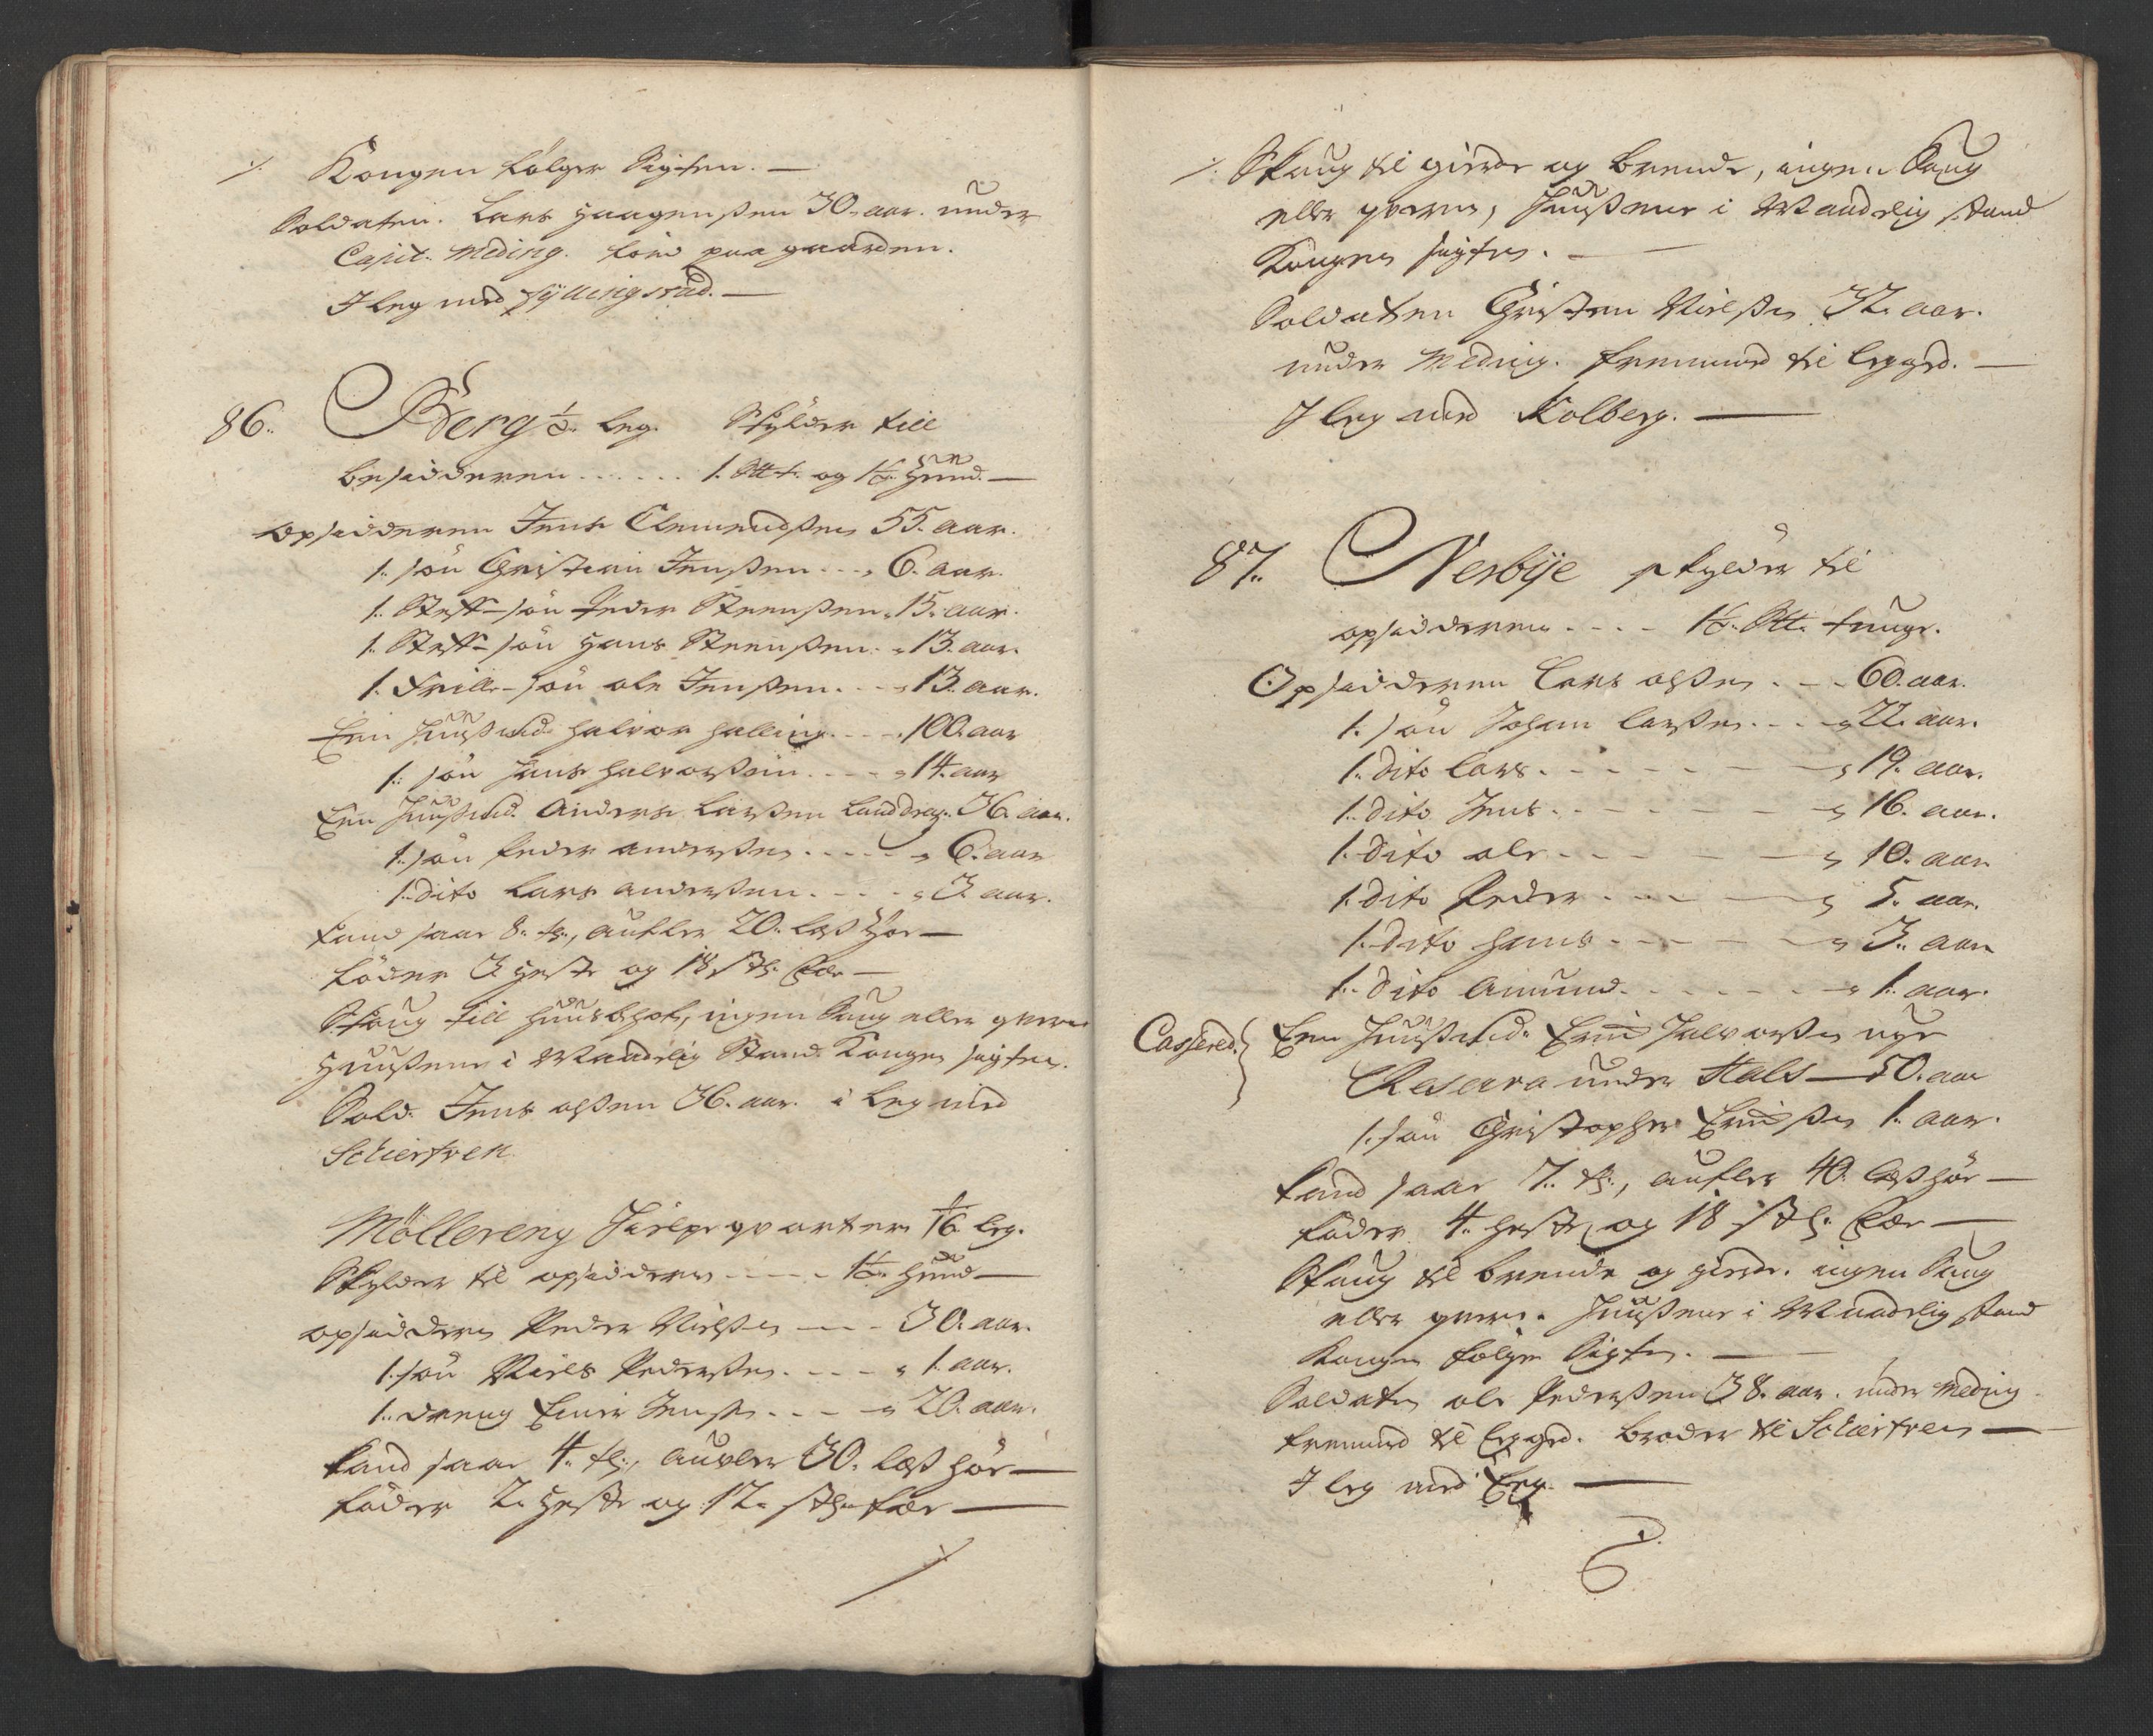 ⁒ Kongen følger Sigten. —
Soldaten. Lars Haagenßen 30. aar. under
Capit. Meding. fød paa gaarden.
I leg med Jÿllingsrud. —
86. Berg ½ leg. Skÿlder till
besidderen . . . . . . 1. Sk tt. og 1½ Hund. —
opsidderen Jens Clemendßen 55. aar.
1. søn Christen Jenßen . . . 6. aar.
1. Steff-søn Peder Steenßen . 15. aar.
1. Steff-søn Hans Steenßen . 13. aar.
1. Frille-søn ole Jenßen . . . 13. aar.
Een Huußmd. Halvor Halling . . . 100. aar
1. søn Jens Halvorßen . . . . 14. aar
Een Huußmd. Anders Larßen Landdrag. 36. aar.
1. søn Peder anderßen . . . . . 6. aar
1. Dito Lars anderßen . . . . 3. aar.
kand saae 8. tr., aufler 20. læß Høe —
føder 3 Heste og 18 stk. Fæe —
Skoug till Huusbhof, ingen Saug eller qvern
Huußene i Maadelig Stand. Kongen sigten.
Sold. Jens olßen 36. aar. i Leg med
Schiertven
Möllereng Hielpe qvarteer 1/16 leg.
Skylder til opsidderen . . . . . 1½ Hund —
opsidderen Peder Nielßen — . . 30. aar.
1. søn Niels Pederßen . . . . 1. aar.
1. dreng Einer Jenßen . . . . 20. aar.
kand saae 4. tr., aufler 30. læß høe —
føder 2. Heste og 12. stk. fæe —
⁒
⁒ Skaug til gierde og brende, ingen Saug
eller qvern, Huußene i Maadelig stand
Kongen sigten. —
Soldaten Christen Nielßen 32. aar.
under Meding. fremmed til leggd. —
I leg med Kolberg. —
87. Nerbÿe skylder til
opsidderen . . . . 1½. Sk tt. tunge.
Opsidderen Lars olßen . . . 60. aar.
1. søn Johan Larßen . . . 22. aar.
1. Dito Lars . . . . . 19. aar.
1. Dito Jens . . . . . 16. aar.
1. Dito ole . . . . . 10. aar
1. Dito Peder . . . . 5. aar.
1. Dito Hans . . . . 3. aar
1. Dito Amund . . . . . 1. aar.
Casserd. } Een Huußmd. Erich Halvorßen nye
Reserva under Stabs — 50. aar
1. søn Christopher Erichßen 1. aar.
kand saae 7. tr., aufler 40. læß høe —
føder 4. heste og 18 stk. Fæe —
Skaug til brende og gierde. ingen Saug
eller qvern. Huußene i Maadelig stand
Kongen følger Sigten. —
Soldaten ole Pederßen 38. aar. under Meding
fremmed til leggd. broder til Schiertven —
I leg med Eeg. —